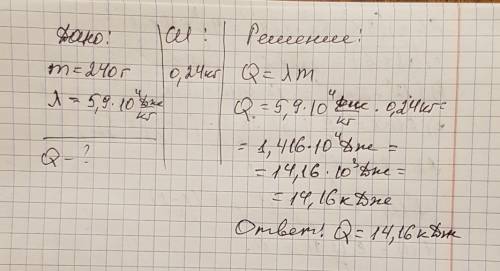 Дано:
m=240г
λ=5,9·10⁴ Дж/кг
Q-?
СИ:
0,24кг
Решение:
Q=λm
Q=5,9·10⁴ Дж/кг · 0,24кг=
=1,416·10⁴Дж=
=14,16·10³Дж=
=14,16кДж
Ответ: Q=14,16кДж